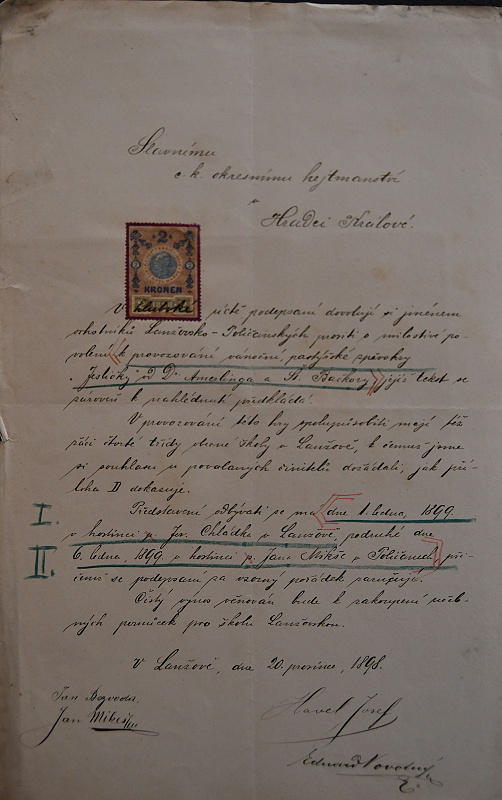 Slavnému
c. k. okresnímu hejtmanství
v
Hradci Králové.
2
KRONEN
V hluboké úctě podepsaní dovolují si jménem
ochotníků Lanžovsko-Poličanských prositi o milostivé po-
volení k provozování vánoční, pastýřské zpěvohry
"Jesličky" od Dr. Amerlinga a Fr. Backovy, jejíž tekst se
zároveň k nahlédnutí předkládá.
V provozování této hry spolupůsobiti mají též
žáci čtvrté třídy obecné školy v Lanžově, k čemuž jsme
si souhlasu u povolaných činitelů dožádali, jak pří-
loha D dokazuje.
I. Představení odbývati se má dne 1. ledna, 1899.
v hostinci p. Jos. Chládka v Lanžově, podruhé dne
II. 6. ledna, 1899. v hostinci p. Jana v Poličanech, při-
čemž se podepsaní za vzorný pořádek zaručují.
Čistý výnos věnován bude k zakoupení učeb-
ných pomůcek pro školu Lanžovskou.
V Lanžově, dne 20. prosince, 1898.
Jan Bezvoda
Jan
Havel Josef
Eduard Novotný